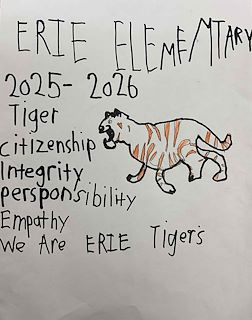 ERIE ELEMENTARY
2025-2026
Tiger
citizenship
Integrity
personsibility
Empathy
We Are ERIE Tiger's